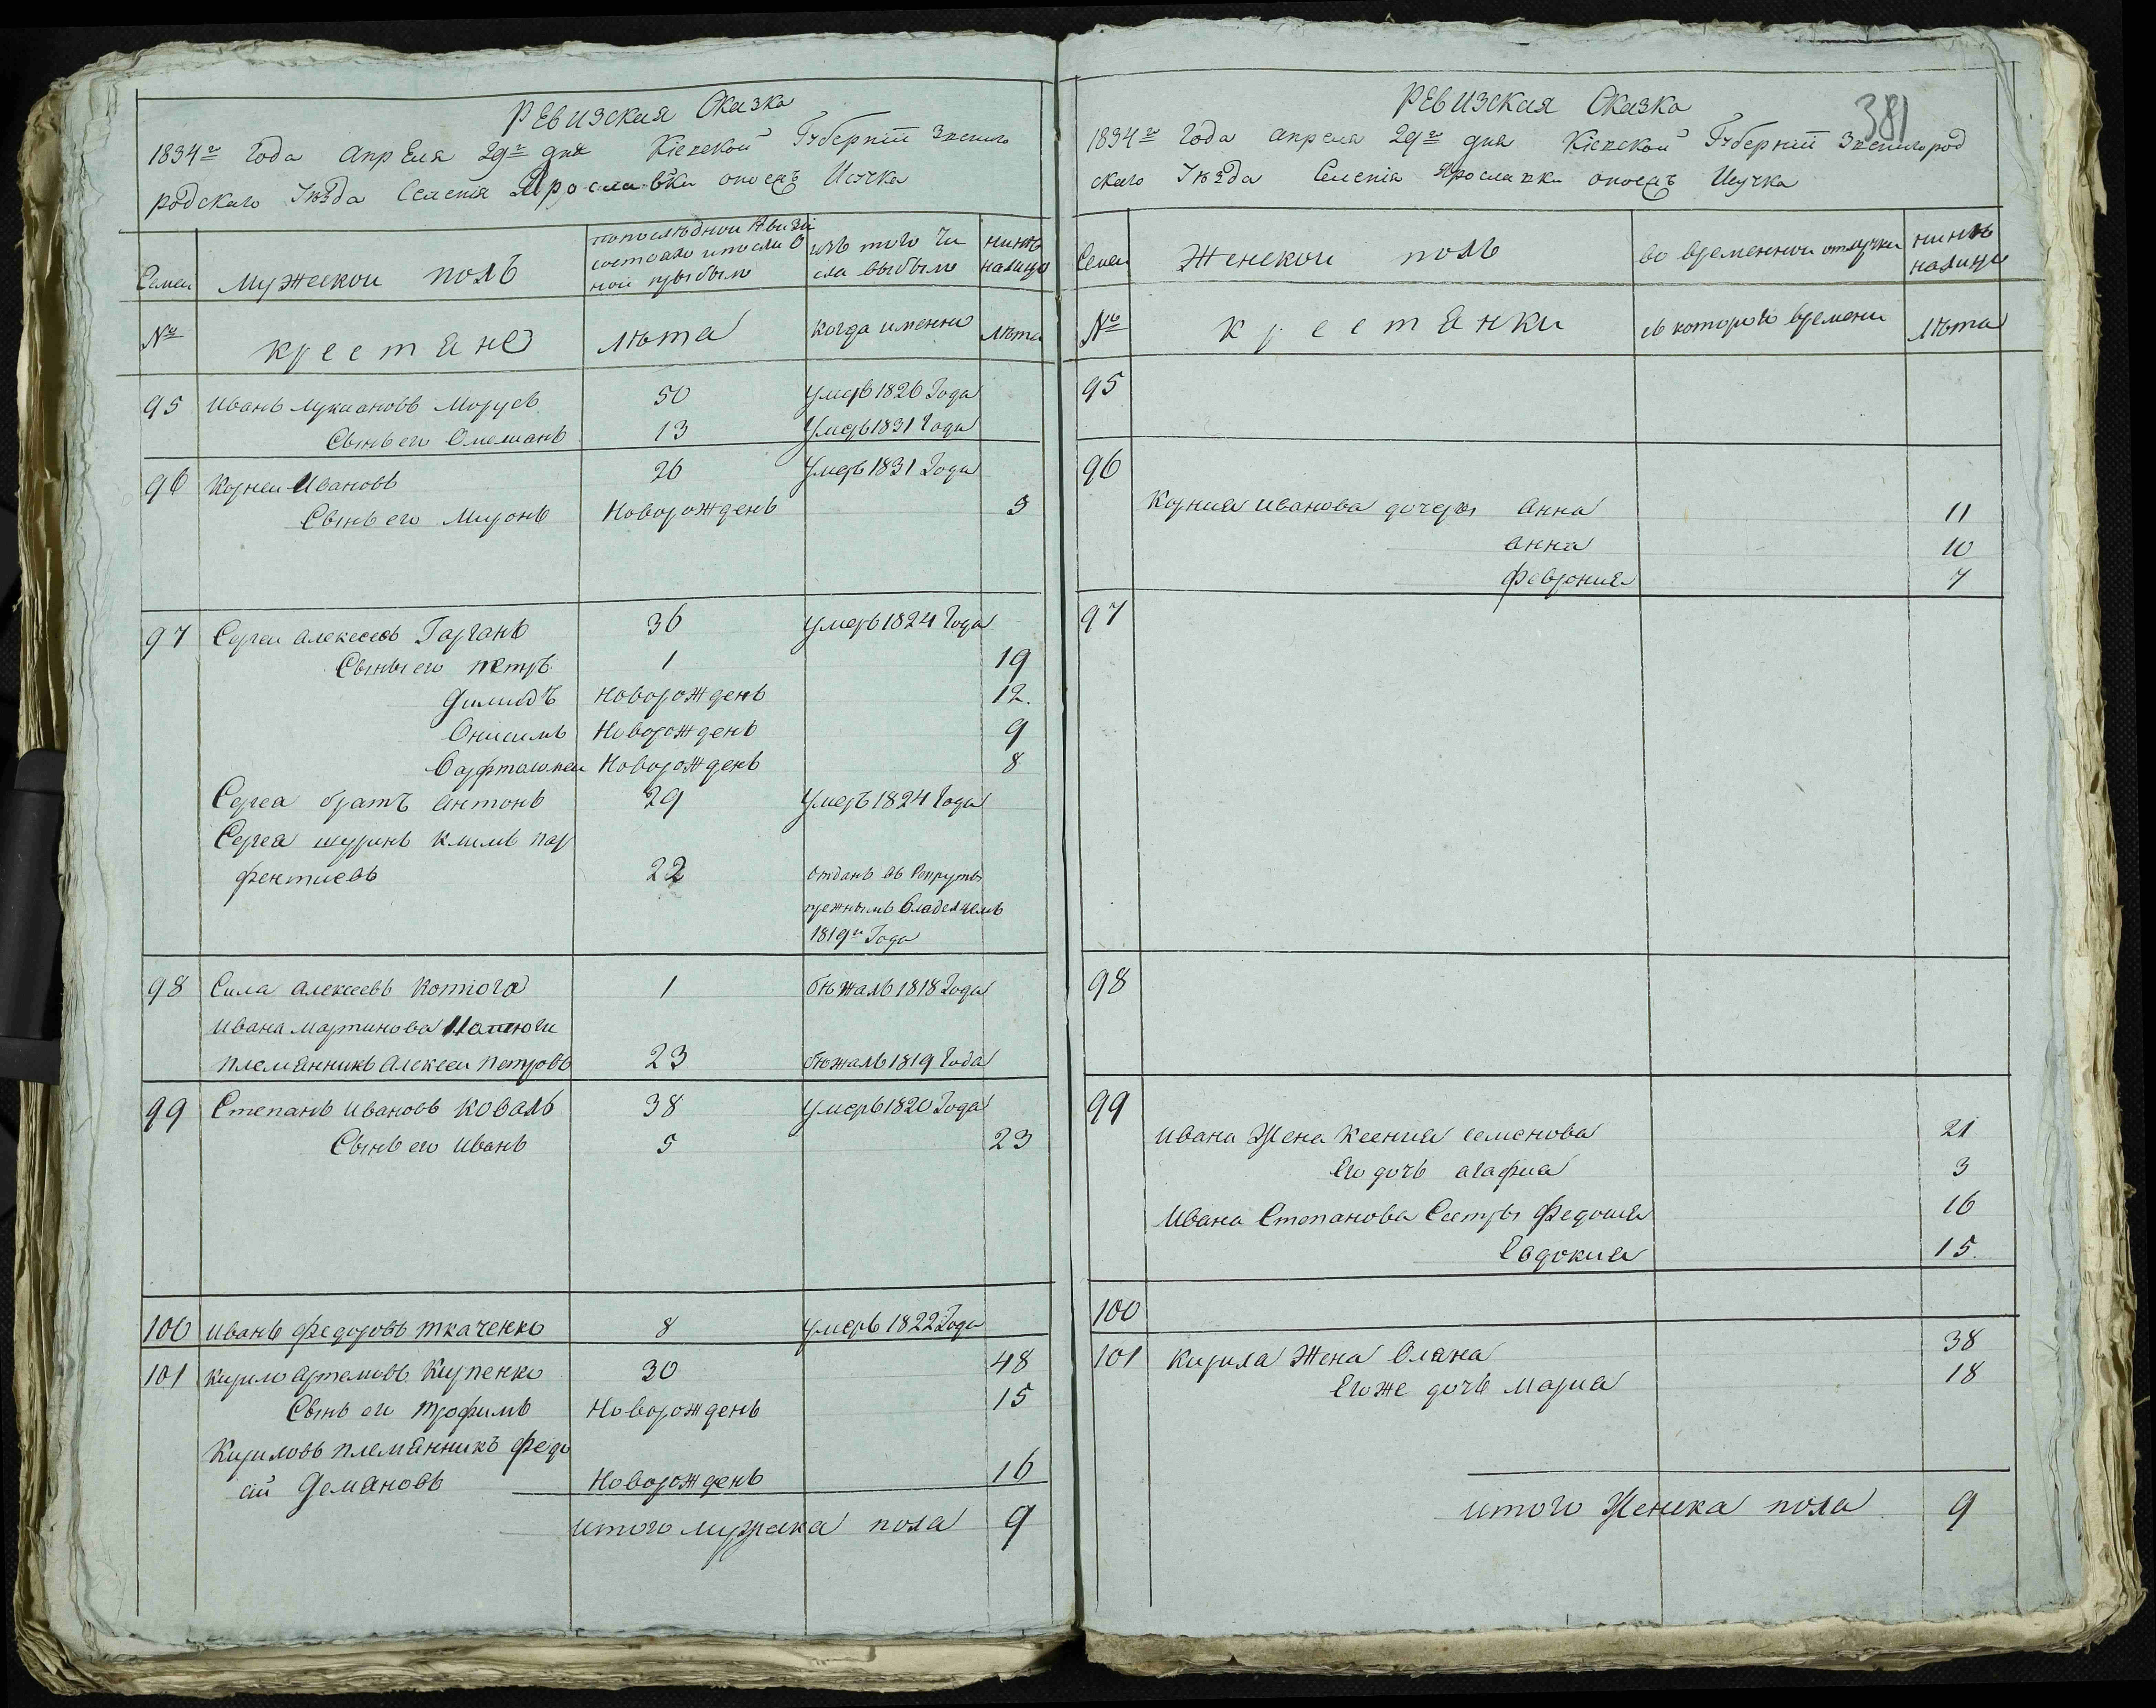 РЕВИЗСКАЯ Сказка
1834го Года Апреля 29го дня Кіевской Губерніи Звениго
родскаго Уезда Селенія Ярославки
Семеи
мужескои полъ
по последнои Ревизіи
состояло и после о
ной прибыло
изъ того чи
сла выбыло
нине
налицо
№
крестяне
лѣта
когда именно
лѣта
95 Иванъ Лукиановъ 50 умеръ 1826 Года
Сынъ его Омелианъ 13 умеръ 1831 Года
96 Корнеи Ивановъ 26 умеръ 1831 Года
Сынъ его Миронъ Новорожденъ 3
97 Сергеи Алексеевъ Гарганъ 36 умеръ 1824 Года
Сыны его петръ 1 19
Димидъ Новорожденъ 12.
Онисимъ Новорожденъ 9
Варфтоломеи Новорожденъ 8
Сергея братъ Антонъ 29 умеръ 1824 Года
Сергея шуринъ Климъ пар
фентиевъ 22 отданъ въ Рекруты
прежнимъ Владелцемъ
1819го Года
98 Сила Алексеевъ 1 бѣжалъ 1818 Года
Ивана Мартинова
племянникъ Алексеи Петровъ 23 бѣжалъ 1819 Года
99 Степанъ Ивановъ Коваль 38 умеръ 1820 Года
Сынъ его Иванъ 5 23
100 Иванъ Федоровъ Ткаченко 8 умеръ 1822 Года
101 Кирило Артемовъ 30 48
Сынъ его Трофимъ Новорожденъ 15
Кириловъ племянникъ Федо
сій Демяновъ Новорожденъ 16
итого мужска пола 9
381
РЕВИЗСКАЯ Сказка
1834го Года Апреля 29го дня Кіевской Губерніи Звенигород
скаго Уезда Селенія Ярославки
Семеи
Женскои полъ
во временнои отлучки
нинѣ
налицо
№
крестянки
съ которого времени
лѣта
95
96
Корния Иванова дочеры Анна 11
Анна 10
Феврония 7
97
98
99
Ивана Жена Ксения Семенова 21
Его дочъ Агафия 3
Ивана Степанова Сестры Федосия 16
Евдокия 15.
100
101 Кирила Жена Оляна 38
Егоже дочъ Мария 18
итого Женска пола 9